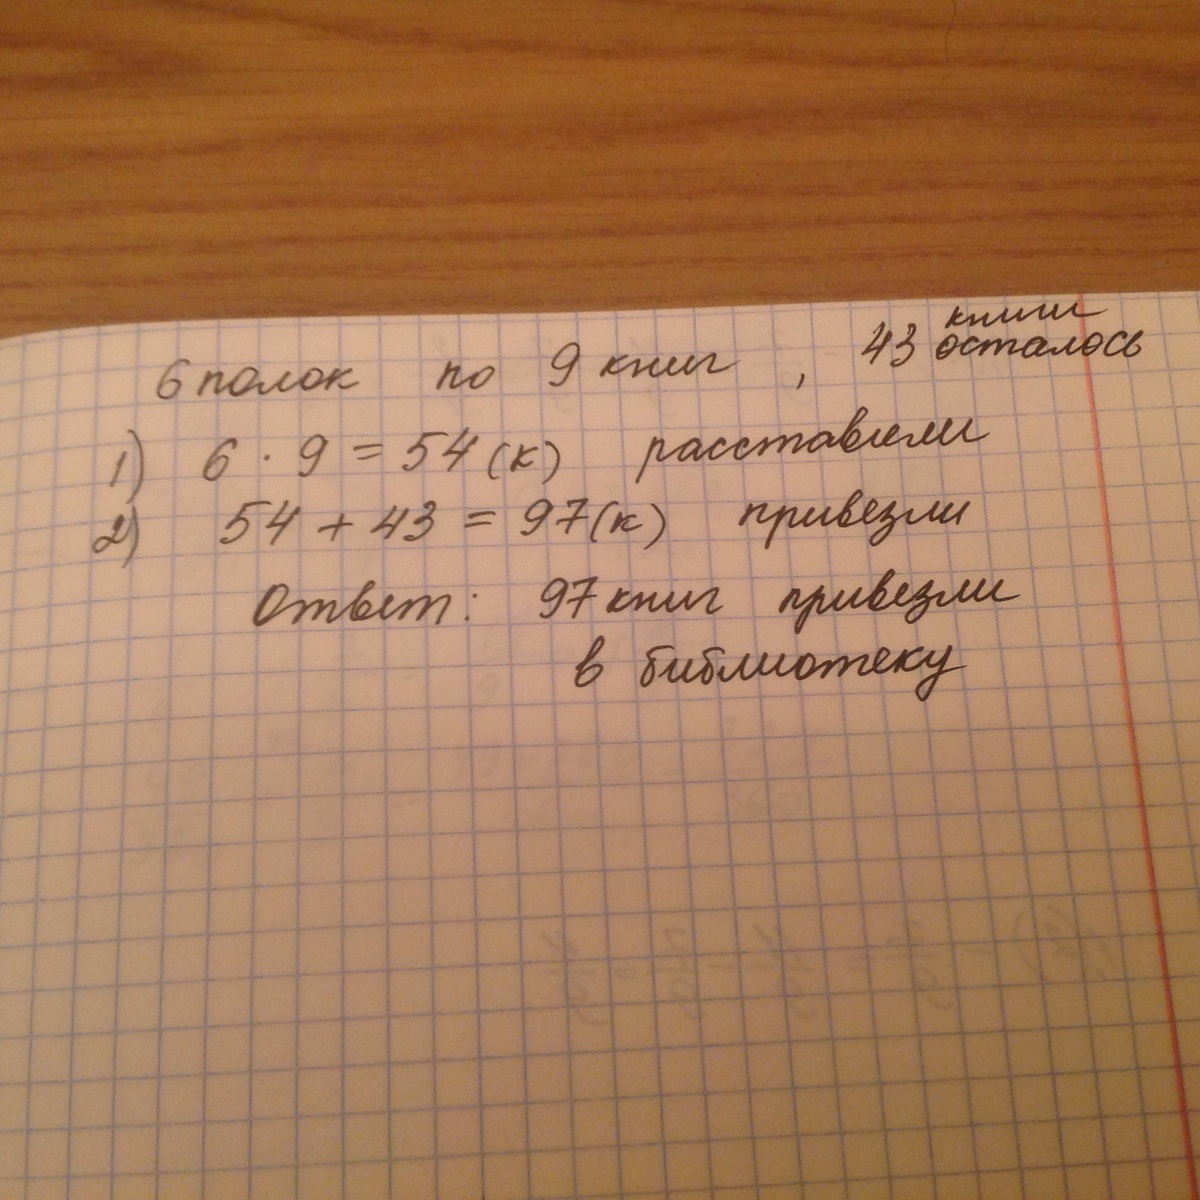 6 полок по 9 книг, 43 книги осталось
1) 6 · 9 = 54 (к) расставили
2) 54 + 43 = 97 (к) привезли
Ответ: 97 книг привезли
в библиотеку